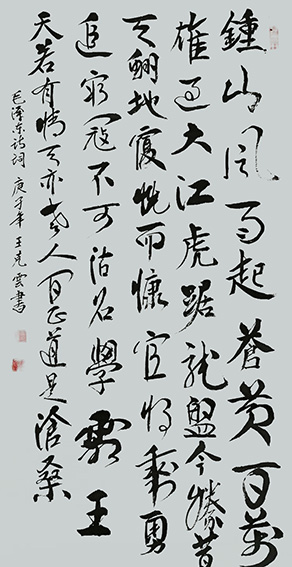 鍾山风雨起蒼黄百萬
雄过大江虎踞龍盤今勝昔
天翻地覆慨而慷宜将剩勇
追窮寇不可沽名學霸王
天若有情天亦老人间正道是滄桑
毛澤东诗词 庚子年 王克雲書